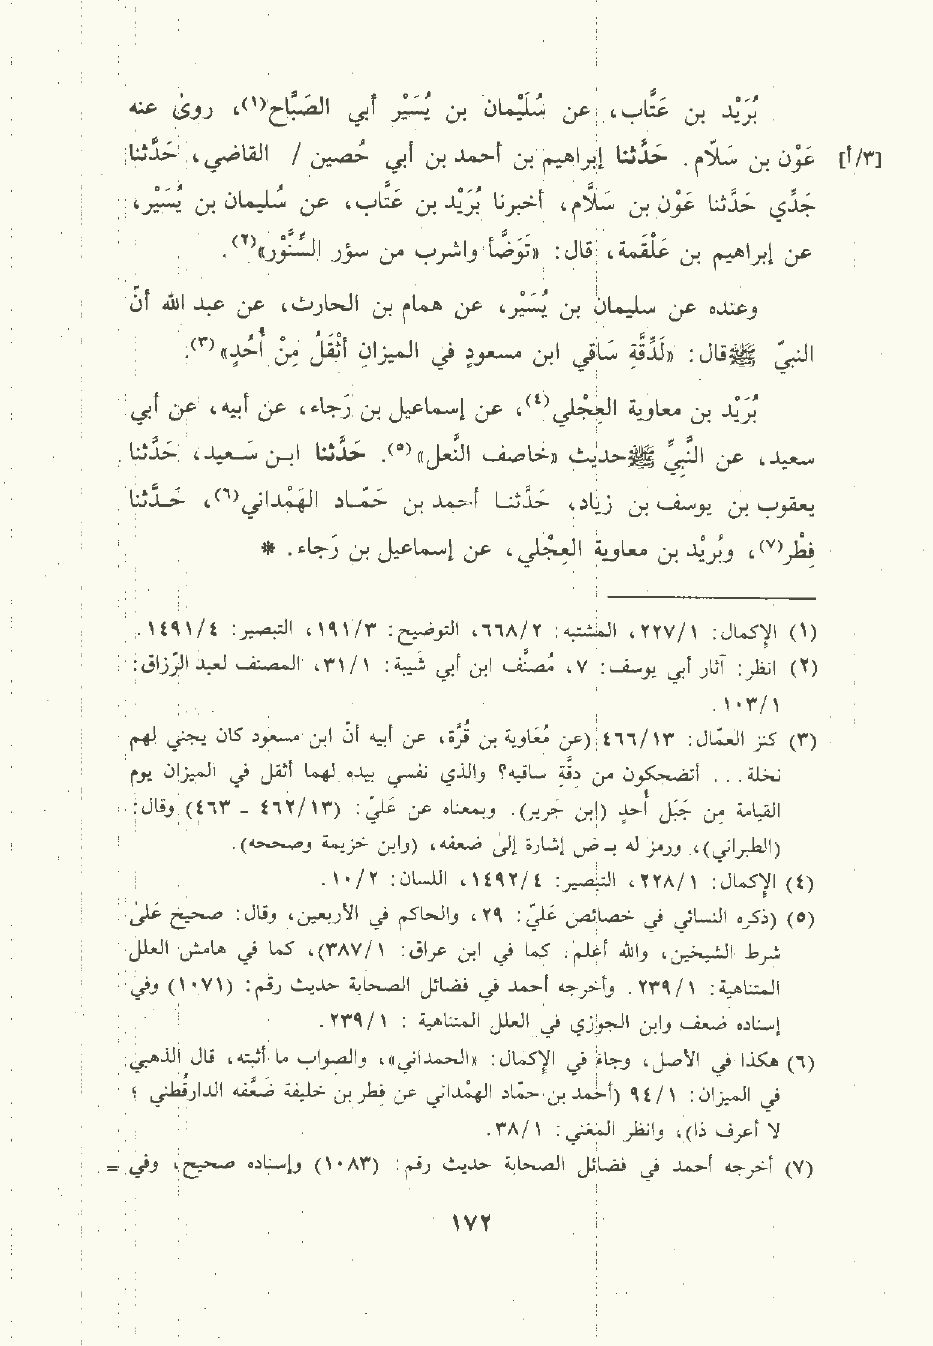 بُرَيْد بن عَتَّاب، عن سُلَيْمان بن يُسَيْر أبي الصَبَّاح(١)، روىٰ عنه
[٣/أ] عَوْن بن سَلاّم. حَدَّثنا إبراهيم بن أحمد بن أبي حُصين / القاضي، حَدَّثنا
جَدِّي حَدَّثنا عَوْن بن سَلاَّم، أخبرنا بُرَيْد بن عَتَّاب، عن سُليمان بن يُسَيْر،
عن إبراهيم بن عَلْقَمة، قال: «تَوَضَّأ واشرب من سؤر السِّنَّوْر»(٢).
وعنده عن سليمان بن يُسَيْر، عن همام بن الحارث، عن عبد الله أنّ
النبيّ ﷺ قال: «لَدِّقَّةِ سَاقي ابن مسعودٍ في الميزانِ أثْقَلُ مِنْ أُحُدٍ»(٣).
بُرَيْد بن معاوية العِجْلي(٤)، عن إسماعيل بن رَجاء، عن أبيه، عن أبي
سعيد، عن النَّبِيِّ ﷺ حديث «خاصف النَّعل»(٥). حَدَّثنا ابن سَعيد، حَدَّثنا
يعقوب بن يوسف بن زياد، حَدَّثنا أحمد بن حَمّاد الهَمْداني(٦)، حَدَّثنا
فِطْر(٧)، وبُرَيْد بن معاوية العِجْلي، عن إسماعيل بن رَجاء. *
(١) الإكمال: ٢٢٧/١، المشتبه: ٦٦٨/٢، التوضيح: ١٩١/٣، التبصير: ١٤٩١/٤.
(٢) انظر: آثار أبي يوسف: ٧، مُصنَّف ابن أبي شَيبة: ٣١/١، المصنف لعبد الرَّزاق:
١٠٣/١.
(٣) كنز العمّال: ٤٦٦/١٣ (عن مُعَاوية بن قُرَّة، عن أبيه أنّ ابن مسعود كان يجني لهم
نخلة... أتضحكون من دِقَّةِ ساقيه؟ والذي نفسي بيده لهما أثقل في الميزان يوم
القيامة مِن جَبَل أُحدٍ (ابن جَرير). وبمعناه عن عَليّ: (٤٦٢/١٣ - ٤٦٣) وقال:
(الطبراني)، ورمز له بـ ص إشارة إلىٰ ضعفه، (وابن خزيمة وصححه).
(٤) الإكمال: ٢٢٨/١، التبصير: ١٤٩٢/٤، اللسان: ١٠/٢.
(٥) (ذكره النسائي في خصائص عَليّ: ٢٩، والحاكم في الأربعين، وقال: صحيح علىٰ
شرط الشيخين، والله أعلم: كما في ابن عراق: ٣٨٧/١)، كما في هامش العلل
المتناهية: ٢٣٩/١. وأخرجه أحمد في فضائل الصحابة حديث رقم: (١٠٧١) وفي
إسناده ضعف وابن الجوزي في العلل المتناهية : ٢٣٩/١.
(٦) هكذا في الأصل، وجاء في الإكمال: «الحمداني»، والصواب ما أثبته، قال الذهبي
في الميزان: ٩٤/١ (أحمد بن حمّاد الهمْداني عن فطر بن خليفة ضَعَّفه الدارقُطني ؛
لا أعرف ذا)، وانظر المغني: ٣٨/١.
(٧) أخرجه أحمد في فضائل الصحابة حديث رقم: (١٠٨٣) وإسناده صحيح، وفي =
١٧٢